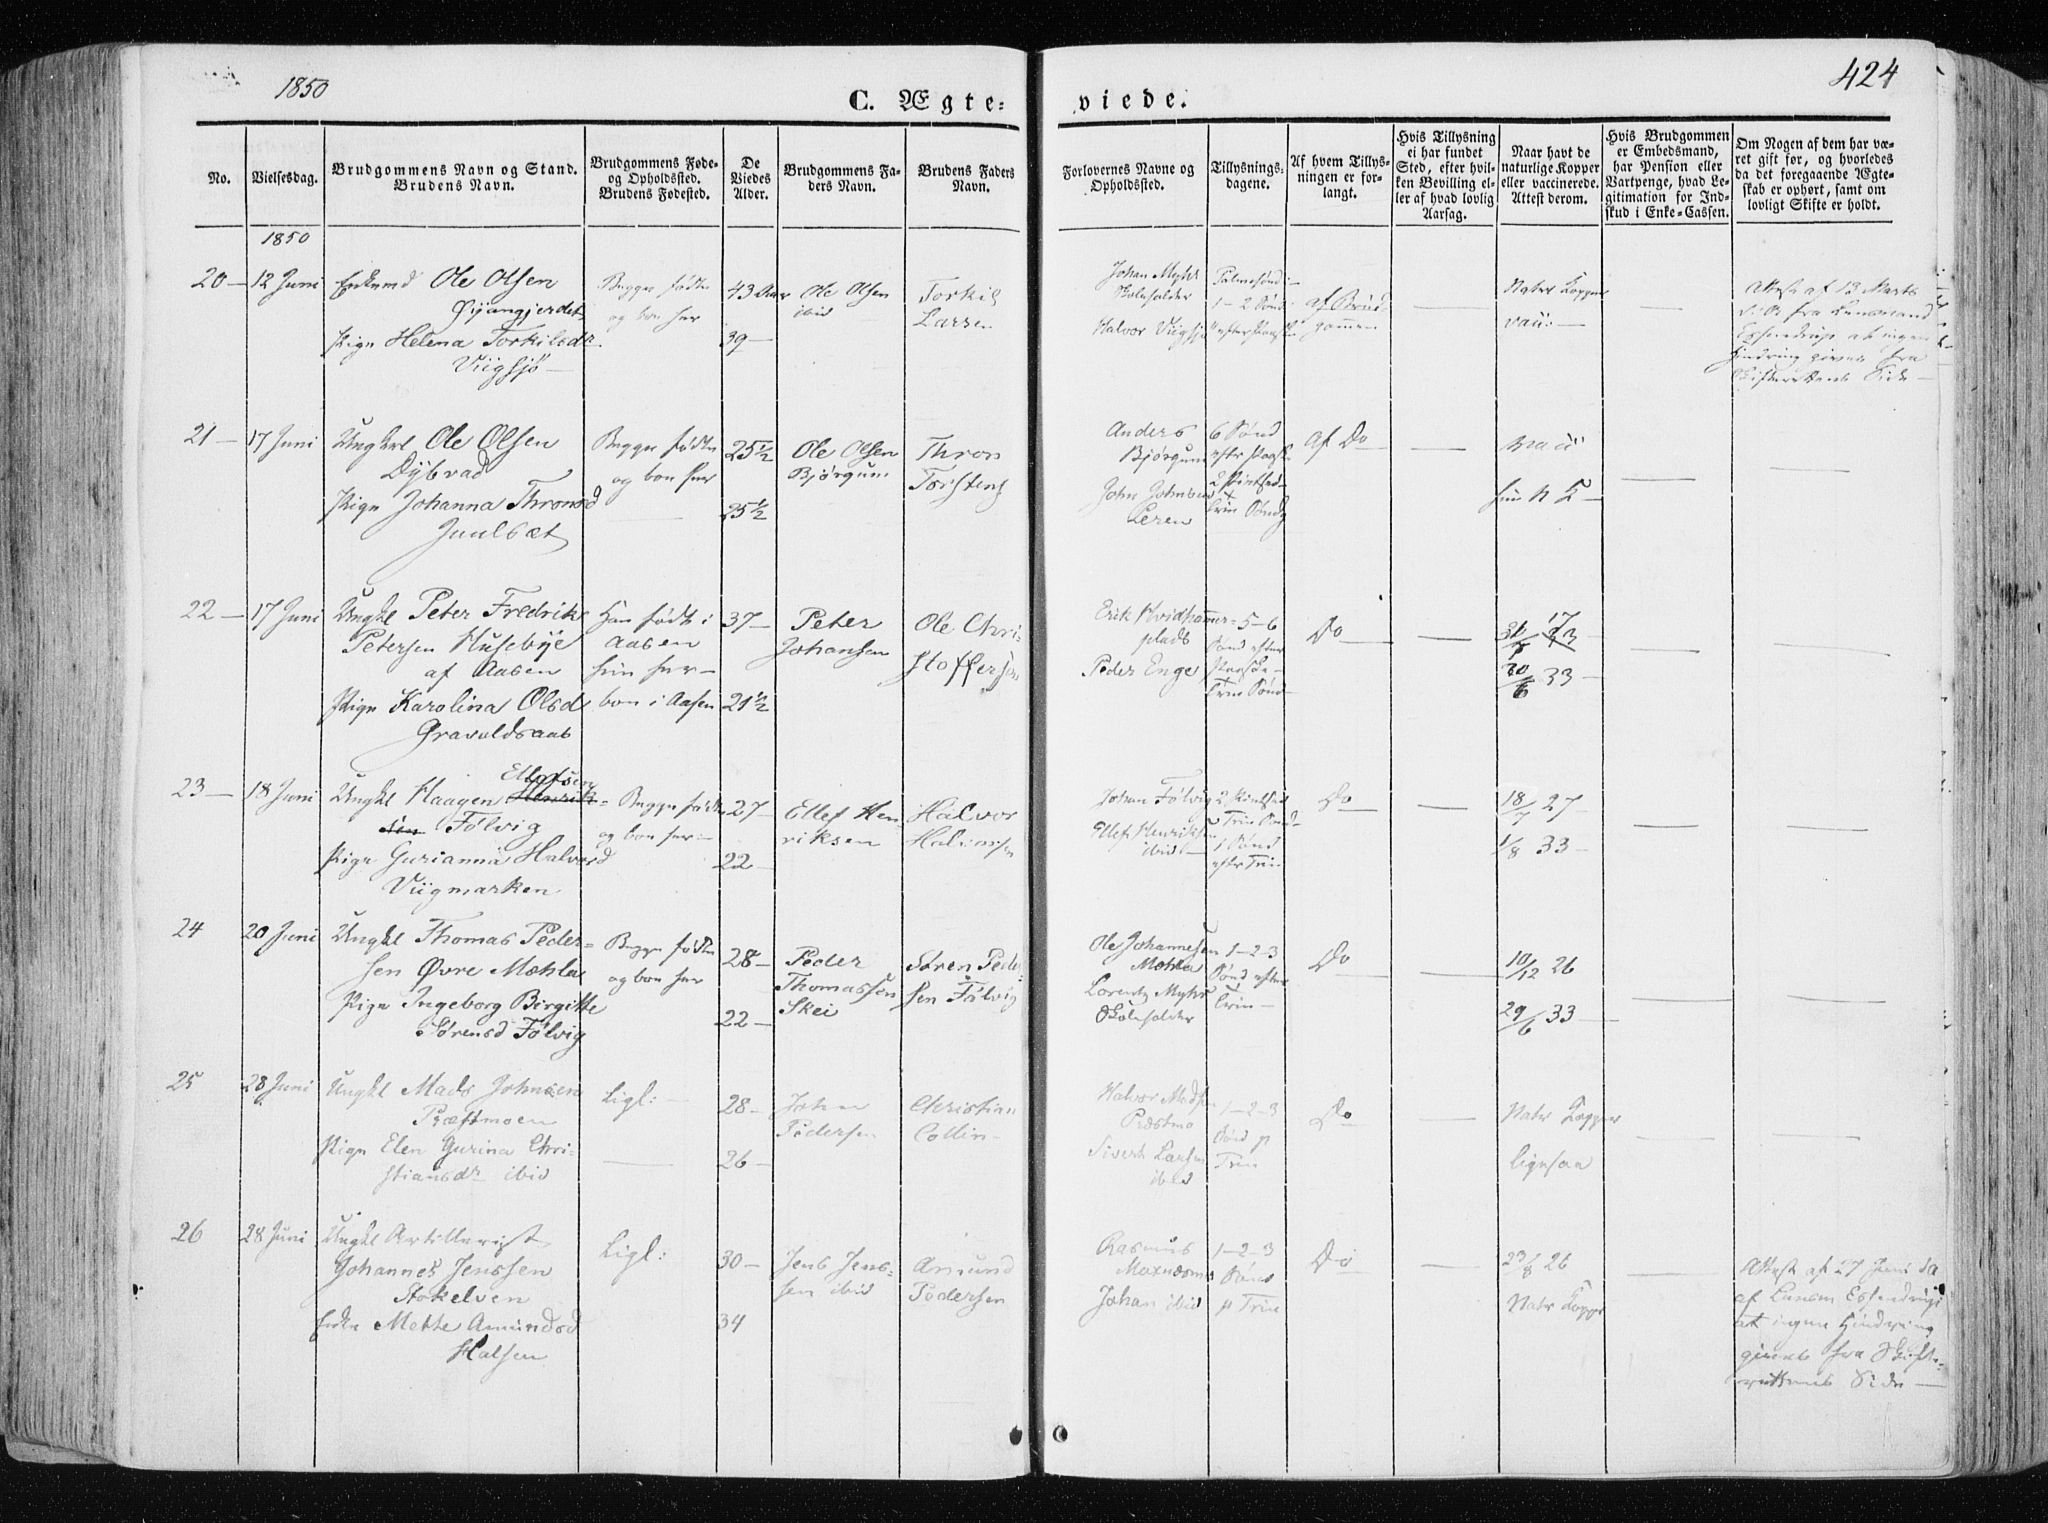 1850
424
C. Ægte-
viede.
No.
Vielsesdag.
Brudgommens Navn og Stand.
Brudens Navn.
Brudgommens Føde-
og Opholdssted.
Brudens Fødested.
De
Viedes
Alder.
Brudgommens Fa-
ders Navn.
Brudens Faders
Navn.
Forlovernes Navne og
Opholdssted.
Tillysnings-
dagene.
Af hvem Tillys-
ningen er for-
langt.
Hvis Tillysning
ei har fundet
Sted, efter hvil-
ken Bevilling el-
ler af hvad lovlig
Aarsag.
Naar havt de
naturlige Kopper
eller vaccinerede.
Attest derom.
Hvis Brudgommen
er Embedsmand,
har Pension eller
Vartpenge, hvad Le-
gitimation for Ind-
skud i Enke-Cassen.
Om Nogen af dem har væ-
ret gift før, og hvorledes
da det foregaaende Ægte-
skab er ophørt, samt om
lovligt Skifte er holdt.
1850
20 — 12 Juni
Enkemd Ole Olsen
Pige Helena Torkilsdr.
Viigsjø —
Begge fødte
og boe her
43 Aar
39 —
Ole Olsen
ibid
Torkil
Larsen
Johan Myhr
Skoleholder
Halvor Viigsjø
Palmesønd-
1-2 Sønd
efter Paaske
af Brud-
gommen
Natr Kopper
vacc: —
Attest af 13 Marts
d. A fra Lensmand
at ingen
Hindring gives fra
Skifterettens Side —
21 — 17 Juni
Ungkl Ole Olsen
Dybvad
Pige Johanna Thronsd
Juulsæt
Begge fødte
og boe her
25 ½
25 ½
Ole Olsen
Bjørgum
Thron
Torstens
Anders
Bjørgum
John Johnsen
Leren
6 Sønd
efter Paaske
2 Pintsed-
Trin Søndg
Af Do
vacc
hun N K —
22 — 17 Juni
Ungkl Peter Fredrik
Petersen Husebye
af Aasen
Pige Karolina Olsd
Gravaldsaas
Han født i
Aasen
hun her —
boe i Aasen
37 —
21 ½
Peter
Johansen
Ole Chri-
stoffersen
Erik Hvidhammer-
plads
Peder Enge
5-6
Sønd efter
Paaske —
Trin Sønd-
Do
17
20/6 33 —
23 — 18 Juni
Ellefsen
Ungkl Haagen Henrik-
sen Følvig
Pige Gurianna Halvorsd
Viigmarken
Begge fødte
og boe her —
27 —
22 —
Ellef Hen-
riksen
Halvor
Johan Følvig
Ellef Henriksen
ibid —
2 Pintsed
Trin Sønd-
1 Sønd
efter Trin
Do
18/7 27 —
1/8 33 —
24 20 Juni
Ungkl Thomas Peder-
sen Øvre Mæhla
Pige Ingeborg Birgitte
Sørensd Følvig
Begge fødte
og boe her
28 —
22 —
Peder
Thomassen
Skei
Søren Peder-
sen Følvig
Ole Johannesen
Mæhla
Lorents Myhr
Skoleholder
1-2-3
Sønd efter
Trin —
Do
10/12 26
29/6 33 —
25 28 Juni
Ungkl Mads Johnsen
Præstmoen
Pige Elen Gurina Chri-
stiansdr ibid
Ligl: —
28 —
26 —
John
Pedersen
Christian
Collin —
Halvor Madsen
Præstmo
Sivert Larsen
ibid
1-2-3
Sønd p
Trin
Do
Natr Kopper
ligesaa
26 28 Juni
Ungkl Artillerist
Johannes Jenssen
Stokelven
Enke Mette Amundsd
Halsen
Ligl:
30 —
34
Jens Jens-
sen ibid
Amund
Pedersen
Rasmus
Moxnæsmo
Johan ibid
1-2-3
Sønd
p Trin
Do
23/8 26
Natr Kopper
Attest af 27 Juni d A
af Lensm
at ingen Hindring
gives fra Skifte-
rettens Side —